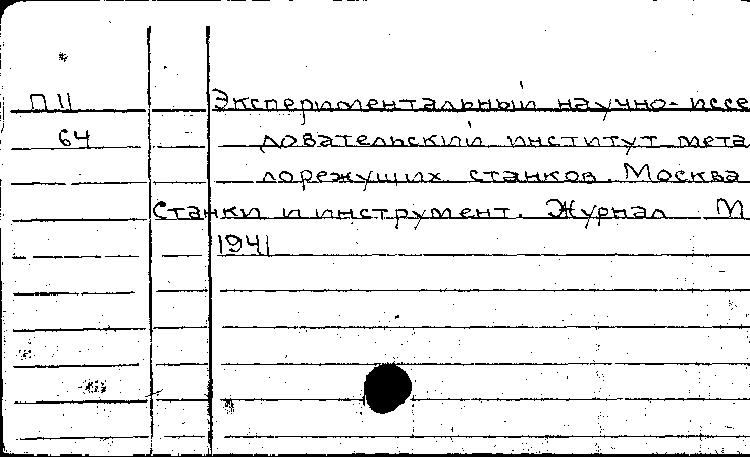 П 11 Экспериментальный научно-иссе
64 довательский институт мета
лорежущих станков. Москва
Станки и инструмент. Журнал М
1941